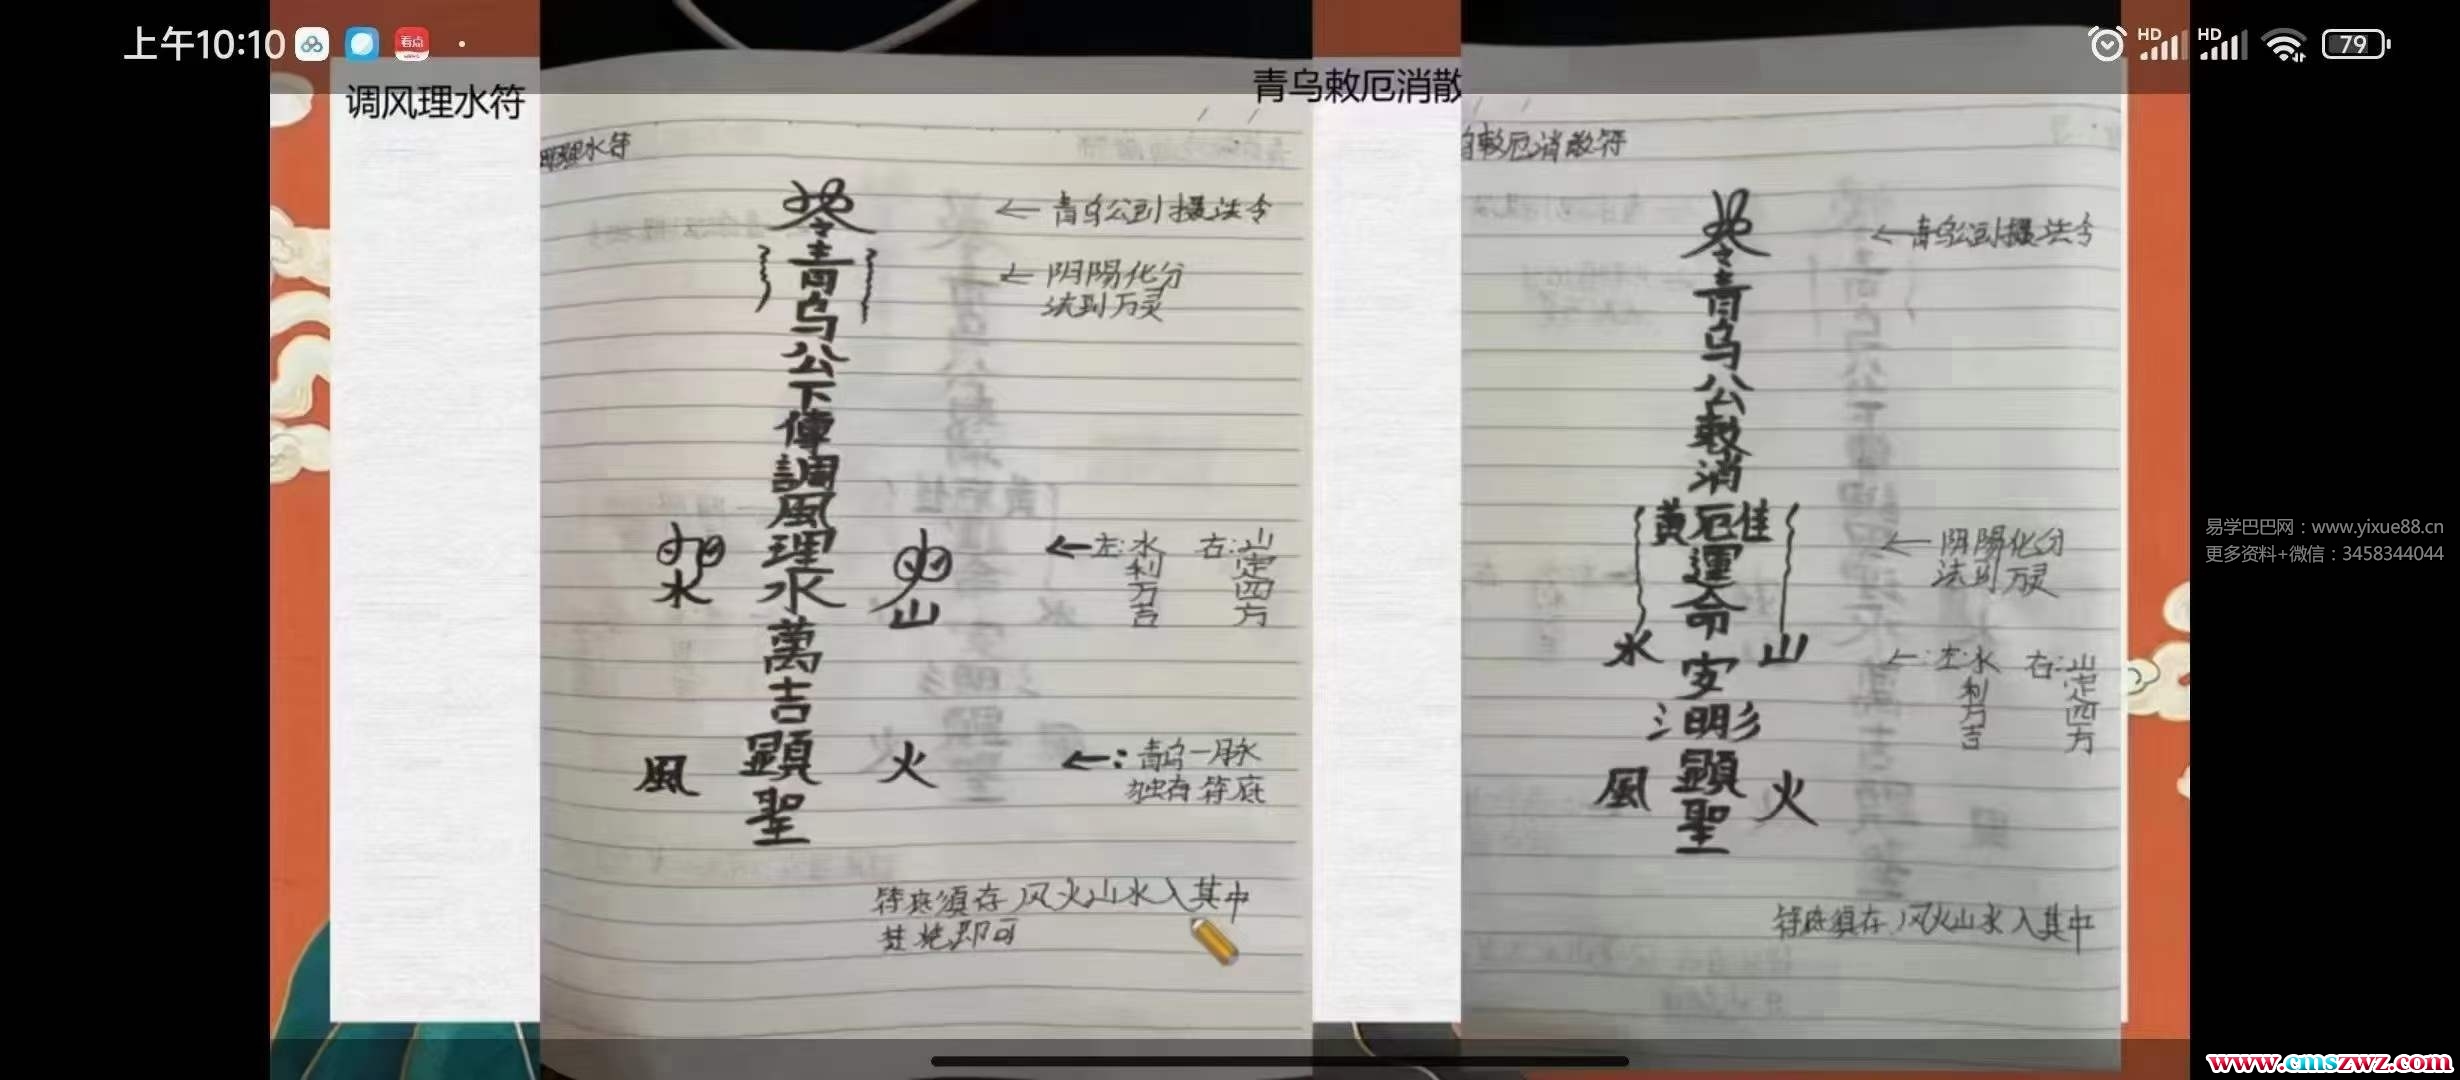 上午10:10
看点
HD
HD
79
调风理水符
理水符
令
青
乌
公
下
傳
調
風
理
水
萬
吉
顕
聖
水
山
風
火
←青乌公到摄法令
←阴陽化分
法到万灵
←左:水利万吉 右:山定四方
←:青乌一脉
独有符底
符底須存风火山水入其中
焚烧即可
青乌敕厄消散
敕厄消散符
令
青
乌
公
敕
消
黄厄佳
運
命
水 安 山
氵明彡
風 顕 火
聖
←青乌公到摄法令
←阴陽化分
法到万灵
←:左:水利万吉 右:山定四方
符底須存风火山水入其中
易学巴巴网:www.yixue88.cn
更多资料+微信:3458344044
www.cmszwz.com